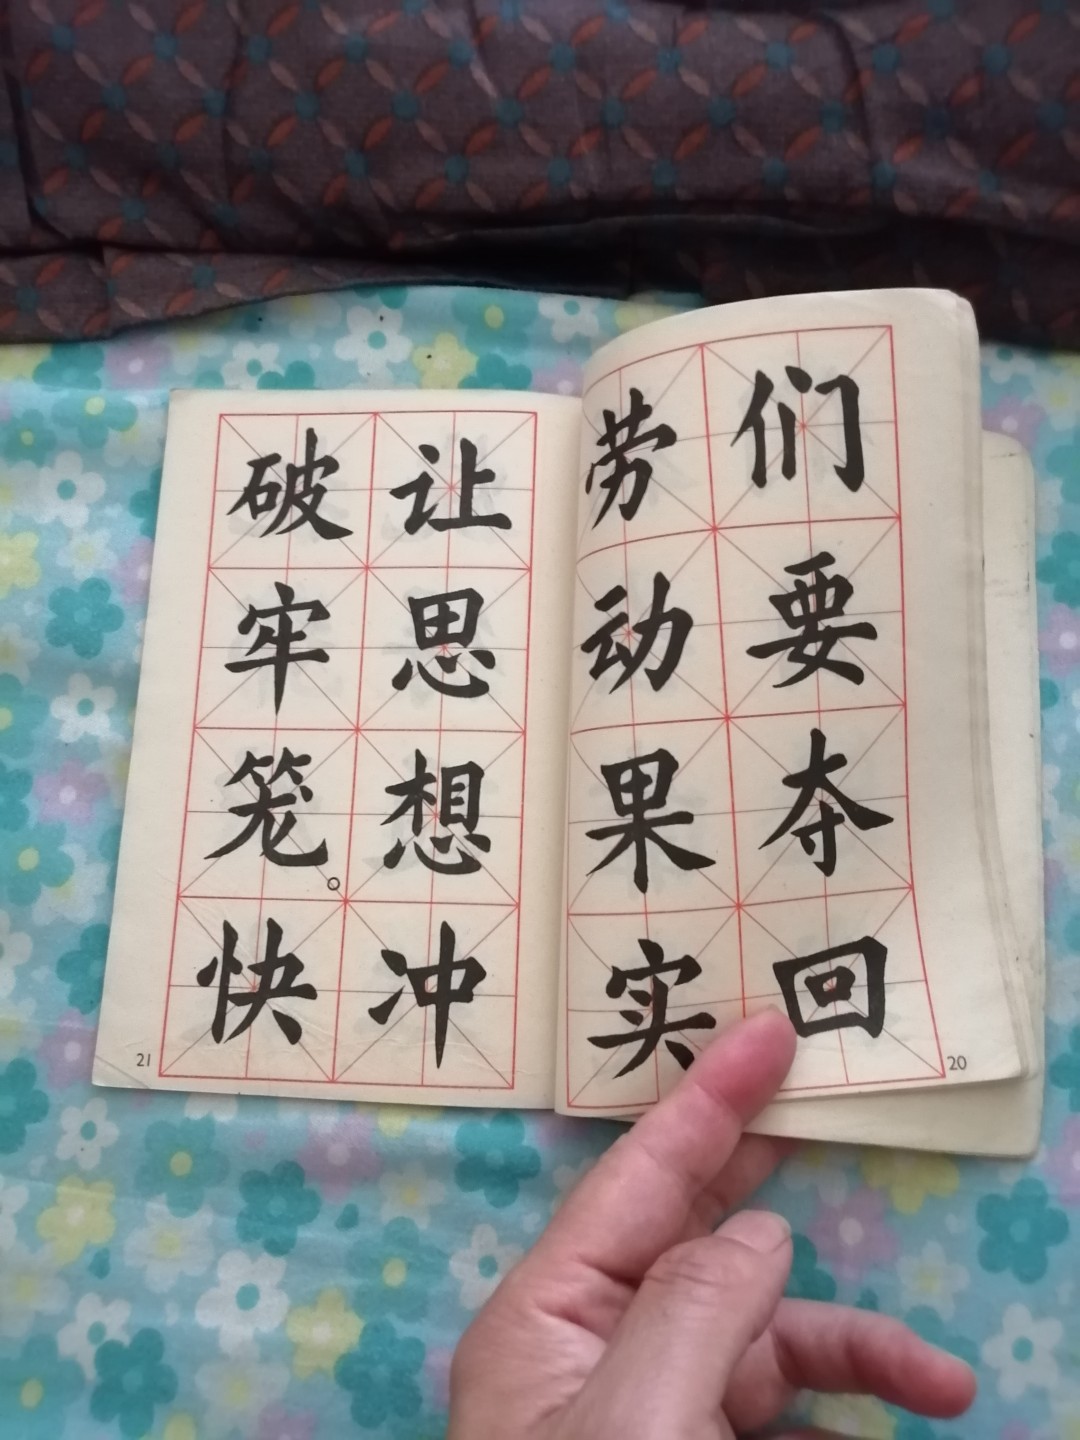 们要夺回
劳动果实
20
让思想冲
破牢笼。快
21